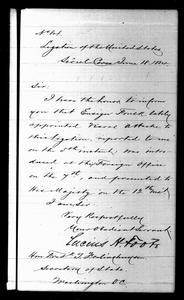 No 84.
Legation of the United States,
Séoul Corea June 18. 1884
Sir:
I have the honor to inform
you that Ensign Foulk lately
appointed Naval Attaché to
this Legation reported to me
on the 5th instant, was intro-
duced at the Foreign Office
on the 7th, and presented to
His Majesty on the 12th inst.
I am Sir
Very Respectfully
Your Obedient Servant,
Lucius H. Foote
Hon. Fredk T. Frelinghuysen
Secretary of State
Washington D.C.